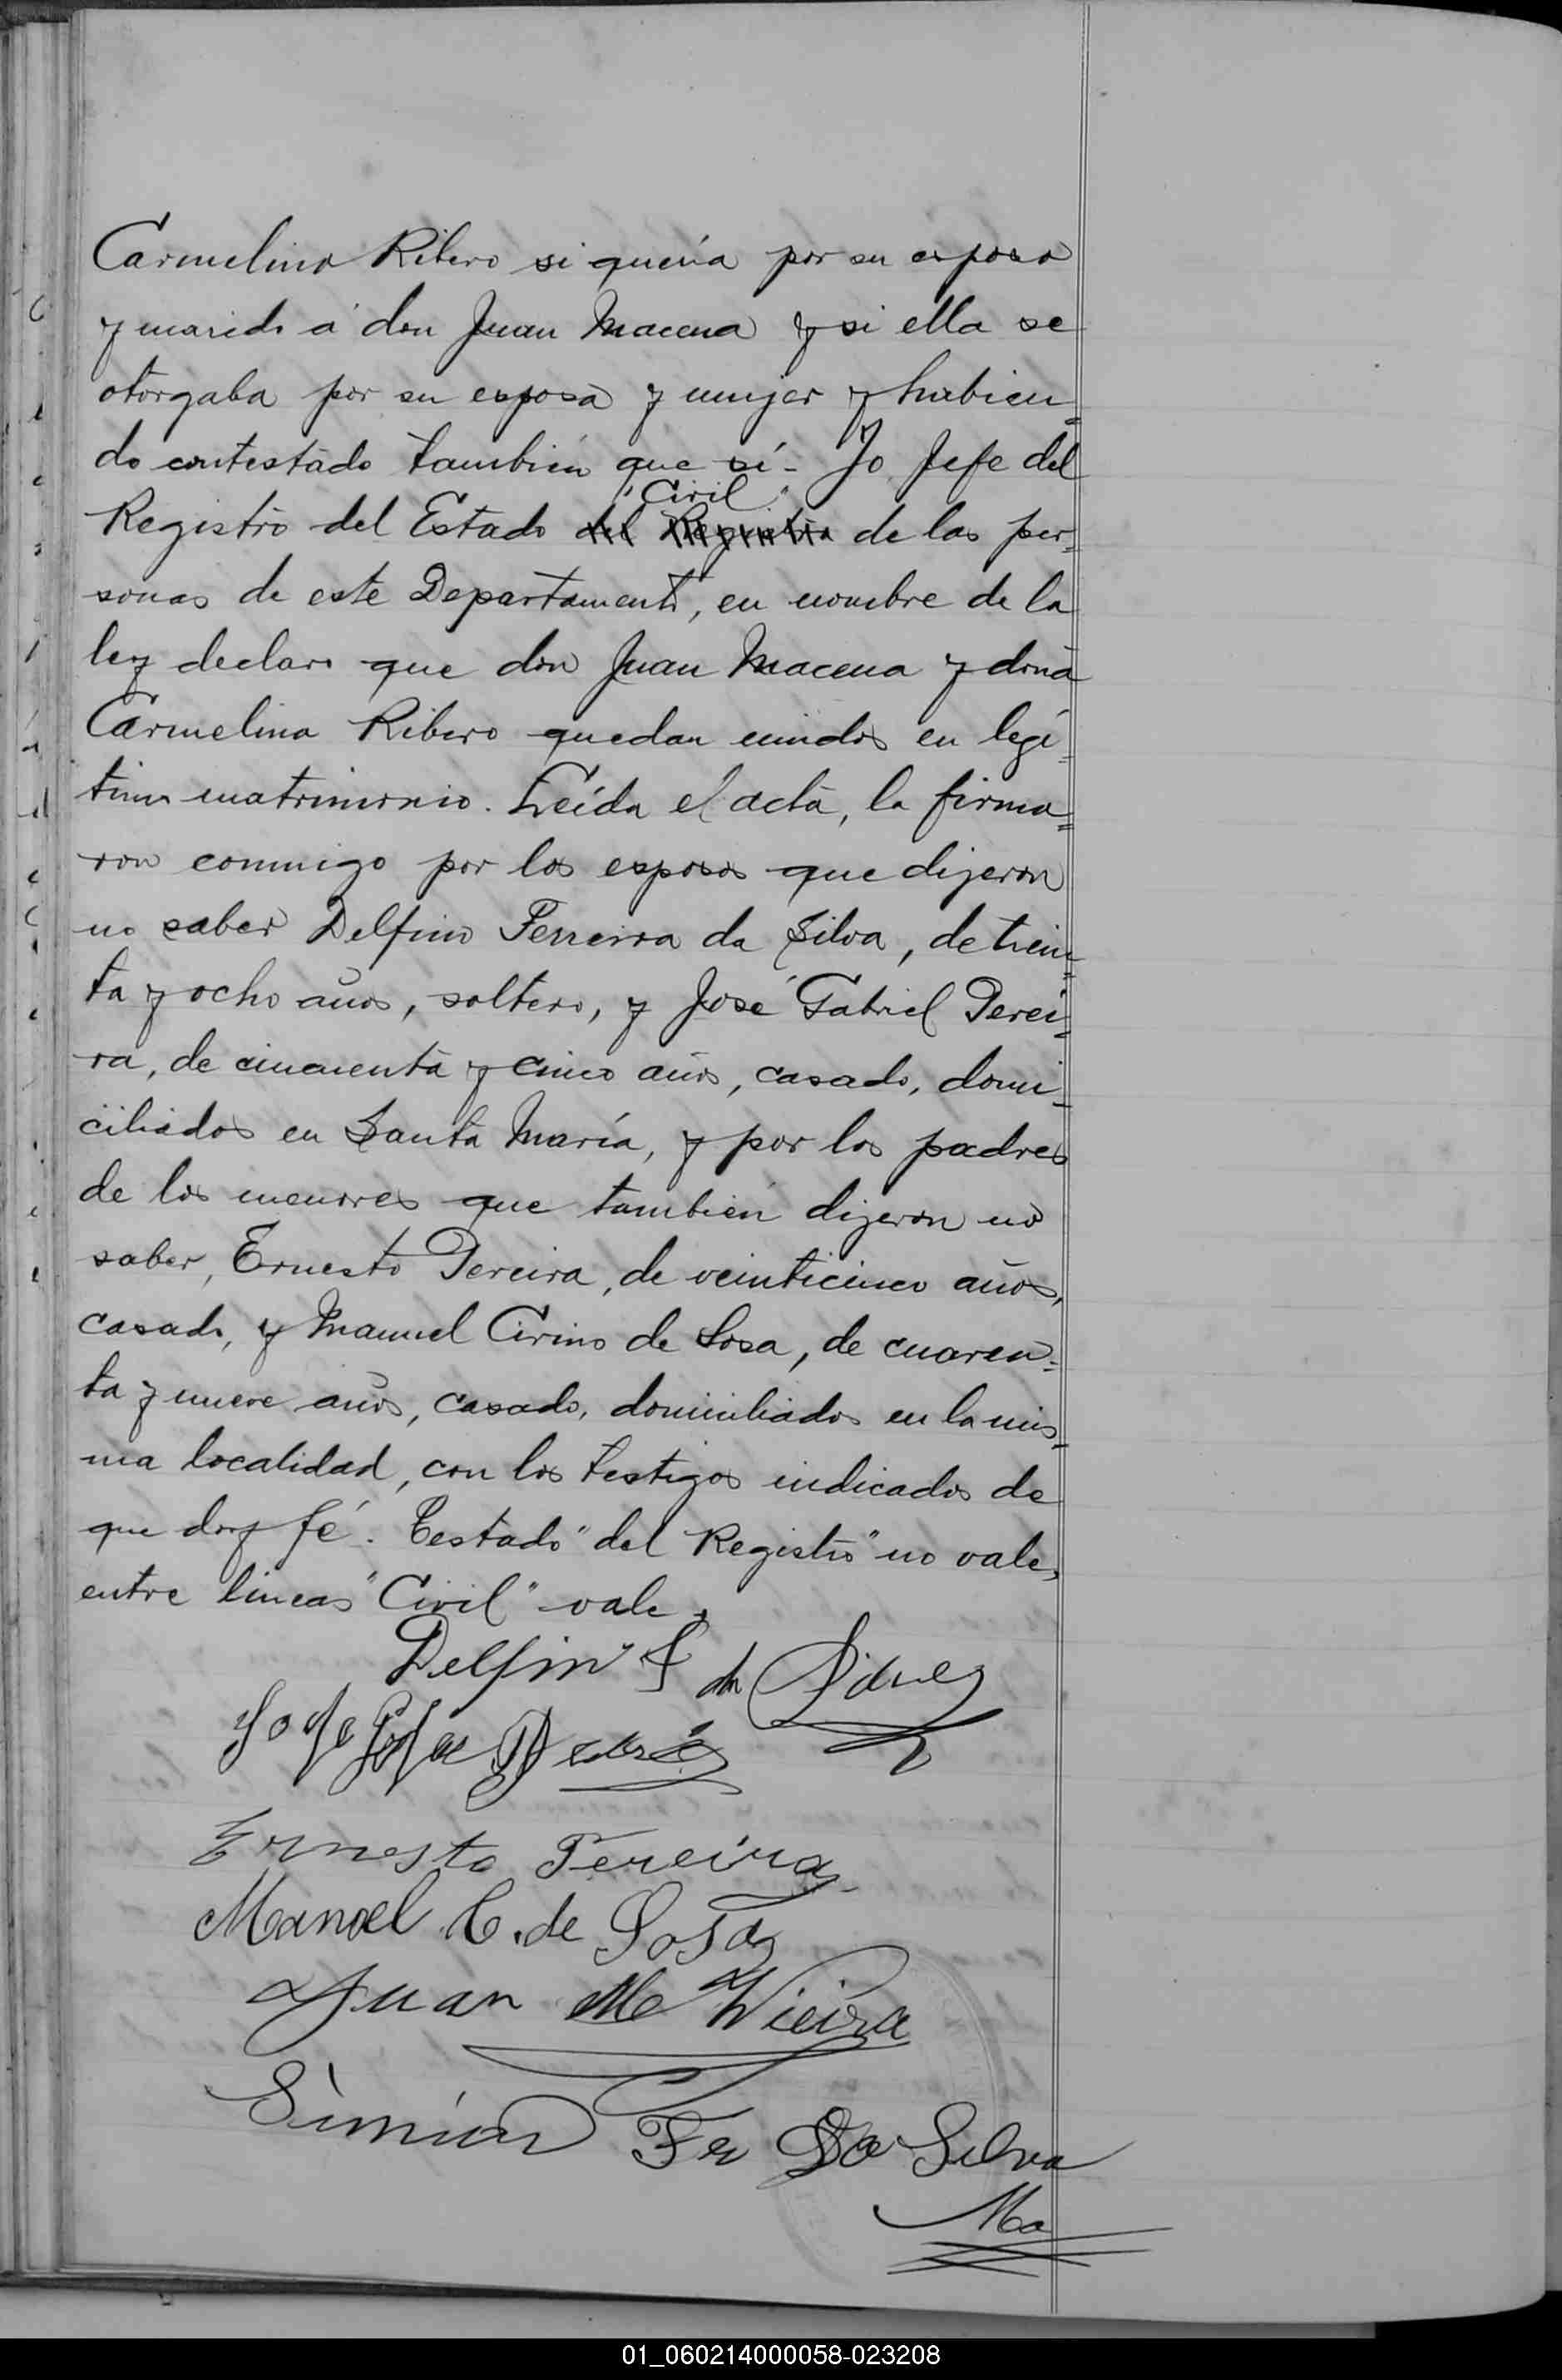 Carmelina Ribero si quería por su esposo
y marido á don Juan Macena y si ella se
otorgaba por su esposa y mujer y habien=
do contestado también que sí - Yo Jefe del
"Civil"
Registro del Estado del Registro de las per=
sonas de este Departamento, en nombre de la
ley declaro que don Juan Macena y doña
Carmelina Ribero quedan unidos en legí=
timo matrimonio. Leída el acta, la firma=
ron conmigo por los esposos que dijeron
no saber Delfino Ferreira da Silva, de trein=
ta y ocho años, soltero, y José Gabriel Perei=
ra, de cincuenta y cinco años, casado, domi=
ciliados en Santa María, y por los padres
de los menores que también dijeron no
saber, Ernesto Pereira, de veinticinco años,
casado, y Manuel Cirino de Sosa, de cuaren=
ta y nueve años, casado, domiciliados en la mis=
ma localidad, con los testigos indicados de
que doy fé. Testado "del Registro" no vale,
entre lineas "Civil" vale.
Delfino F da
Ernesto Pereira
Manoel C. de Sosa
Juan M Vieira
Simión Fer Da Silva
01_060214000058-023208